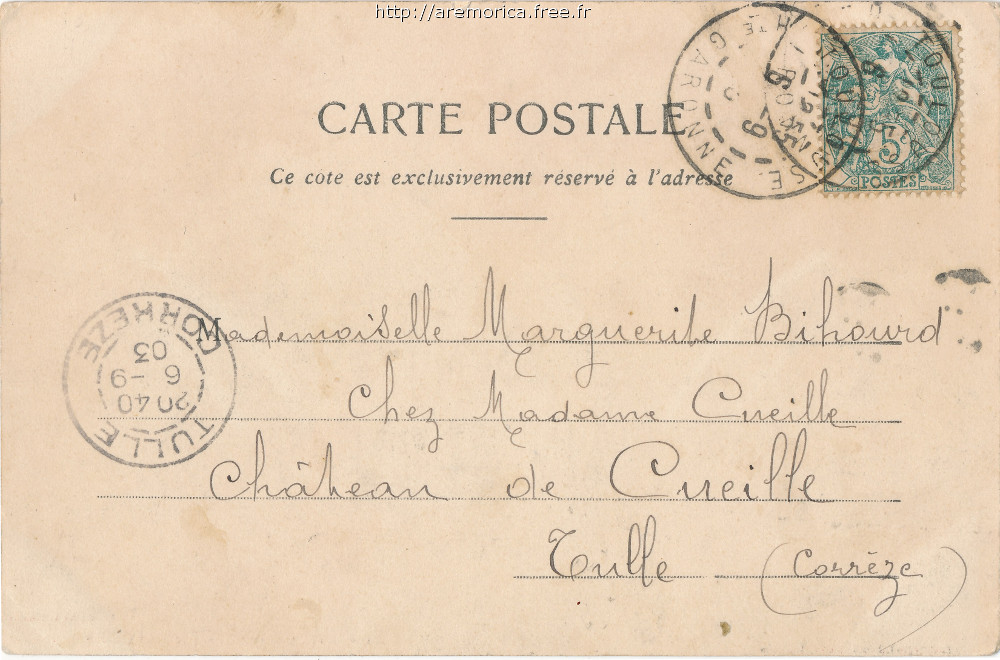 http://aremorica.free.fr
CARTE POSTALE
Ce cote est exclusivement réservé à l'adresse
5
POSTES
GARONNE
Mademoiselle Marguerite Bihourd
Chez Madame Cueille
Château de Cueille
Tulle (Corrèze)
TULLE
20 40
6 -9
03
CORREZE